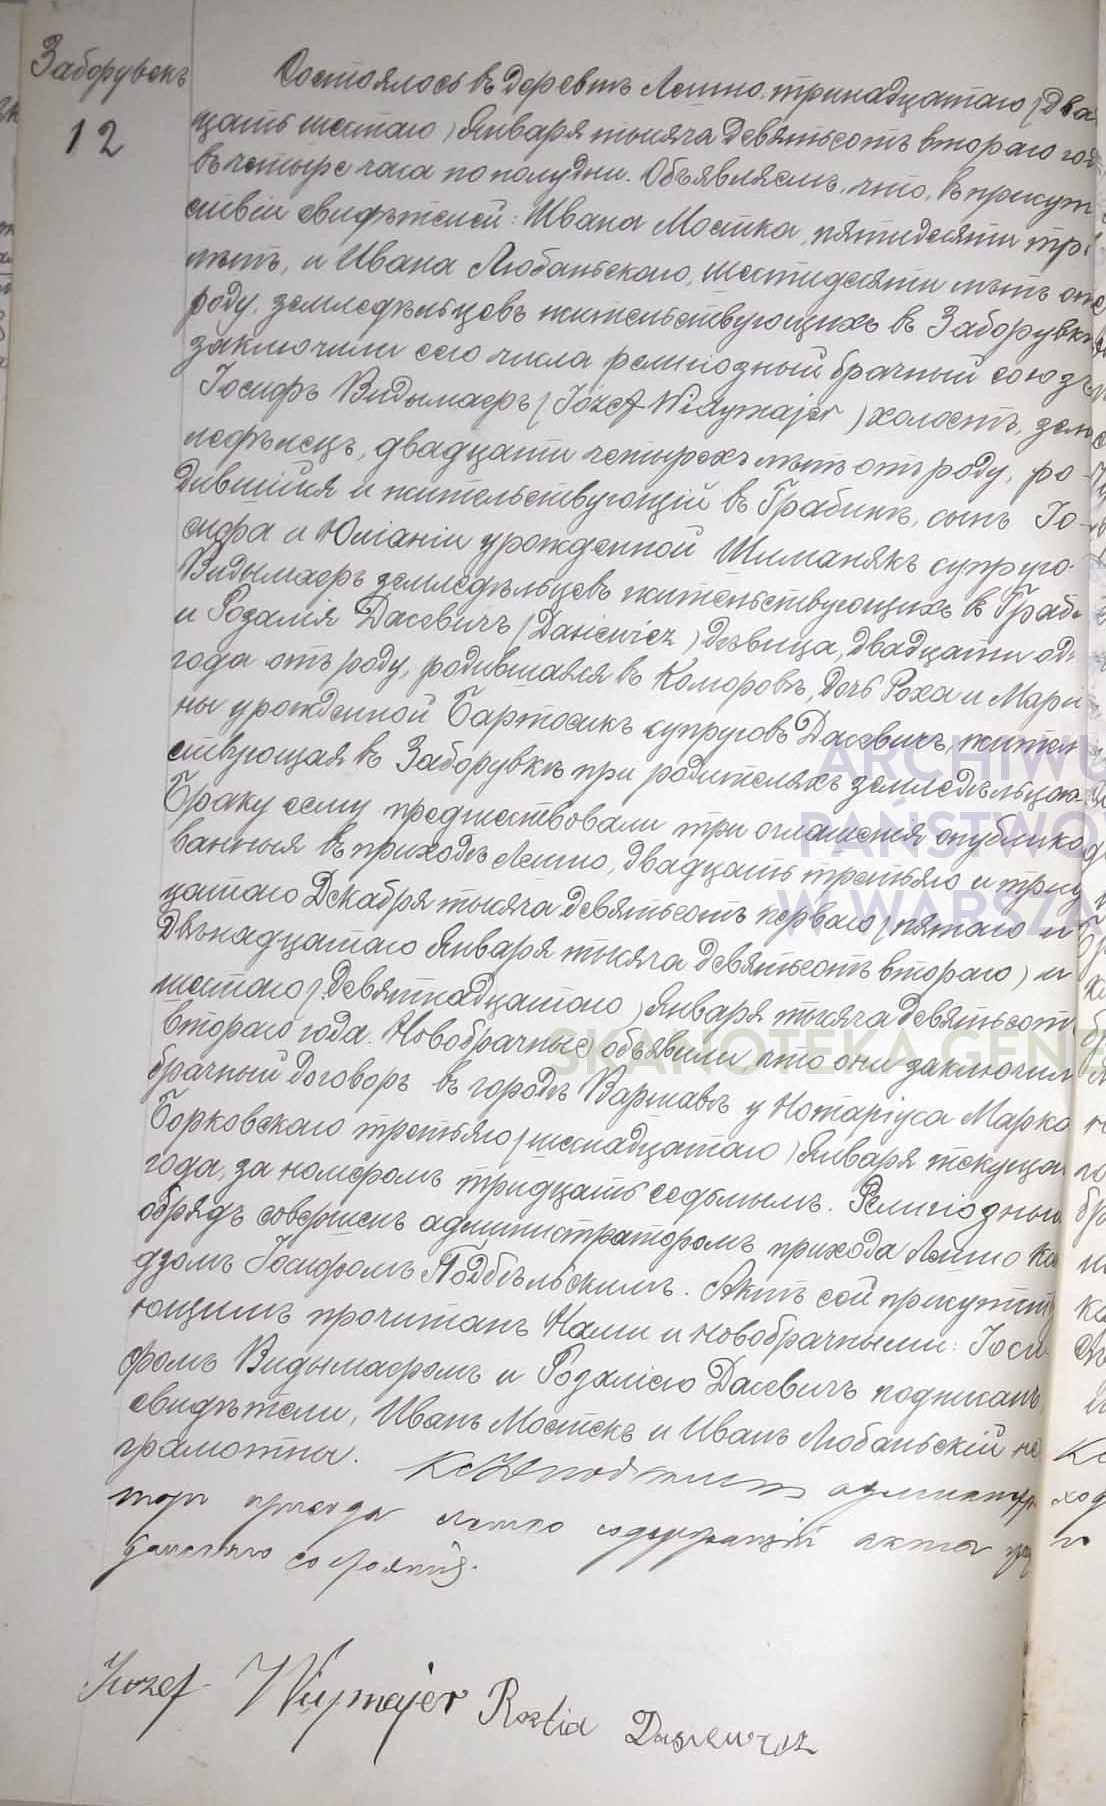 Заборувекъ
12
Состоялось въ деревнѣ Лешно, тринадцатаго (два
цать шестаго) Января тысяча девятьсотъ втораго год
въ четыре часа по полудни. Объявляемъ, что, въ присут
ствіи свидѣтелей: Ивана Мостка, пятидесяти три
лѣтъ, и Ивана Любаньскаго, шестидесяти лѣтъ отъ
роду, земледѣльцевъ жительствующихъ въ Заборувкѣ
заключили сего числа религіозный брачный союзъ
Іосифъ Видымаеръ (Józef Widymajer) холостъ, зем
ледѣлецъ, двадцати четырехъ лѣтъ отъ роду, ро-
дившійся и жительствующій въ Грабинѣ, сынъ Іо-
сифа и Юліаніи урожденной Шиманякъ супруго-
Видымаеръ земледѣльцевъ жительствующихъ въ Граб
и Розалія Дасевичъ (Dasiewicz) дѣвица, двадцати од
года отъ роду, родившаяся въ Коморовѣ, дочь Роха и Марі
ны урожденной Бартосикъ супруговъ Дасевичъ, жител
ствующая въ Заборувкѣ при родителяхъ земледѣльца
Браку сему предшествовали три оглашенія опублико
ванныя въ приходѣ Лешно, двадцать третьяго и трид
цатаго Декабря тысяча девятьсотъ перваго (пятаго и
двѣнадцатаго Января тысяча девятьсотъ втораго) и
шестаго (девятнадцатаго) Января тысяча девятьсот
втораго года. Новобрачные объявили что они заключил
брачный договоръ въ городѣ Варшавѣ у Нотаріуса Марко
Борковскаго третьяго (шестнадцатаго) Января текуща
года, за номеромъ тридцать седьмымъ. Религіозный
обрядъ совершенъ администраторомъ прихода Лешно Кс
дзомъ Іосифомъ Подбѣльскимъ. Актъ сей присутств
ющимъ прочитанъ Нами и новобрачными: Іоси-
фомъ Видымаеромъ и Розаліею Дасевичъ подписанъ,
свидѣтели, Иванъ Мостекъ и Иванъ Любаньскій не
грамотны.
прихода Лешно содержащій акта гра
данскаго состоянія.
Jozef Widymajer Rozalia Dasiewicz
ARCHIWU
PAŃSTWO
W WARSZA
SKANOTEKA GENE